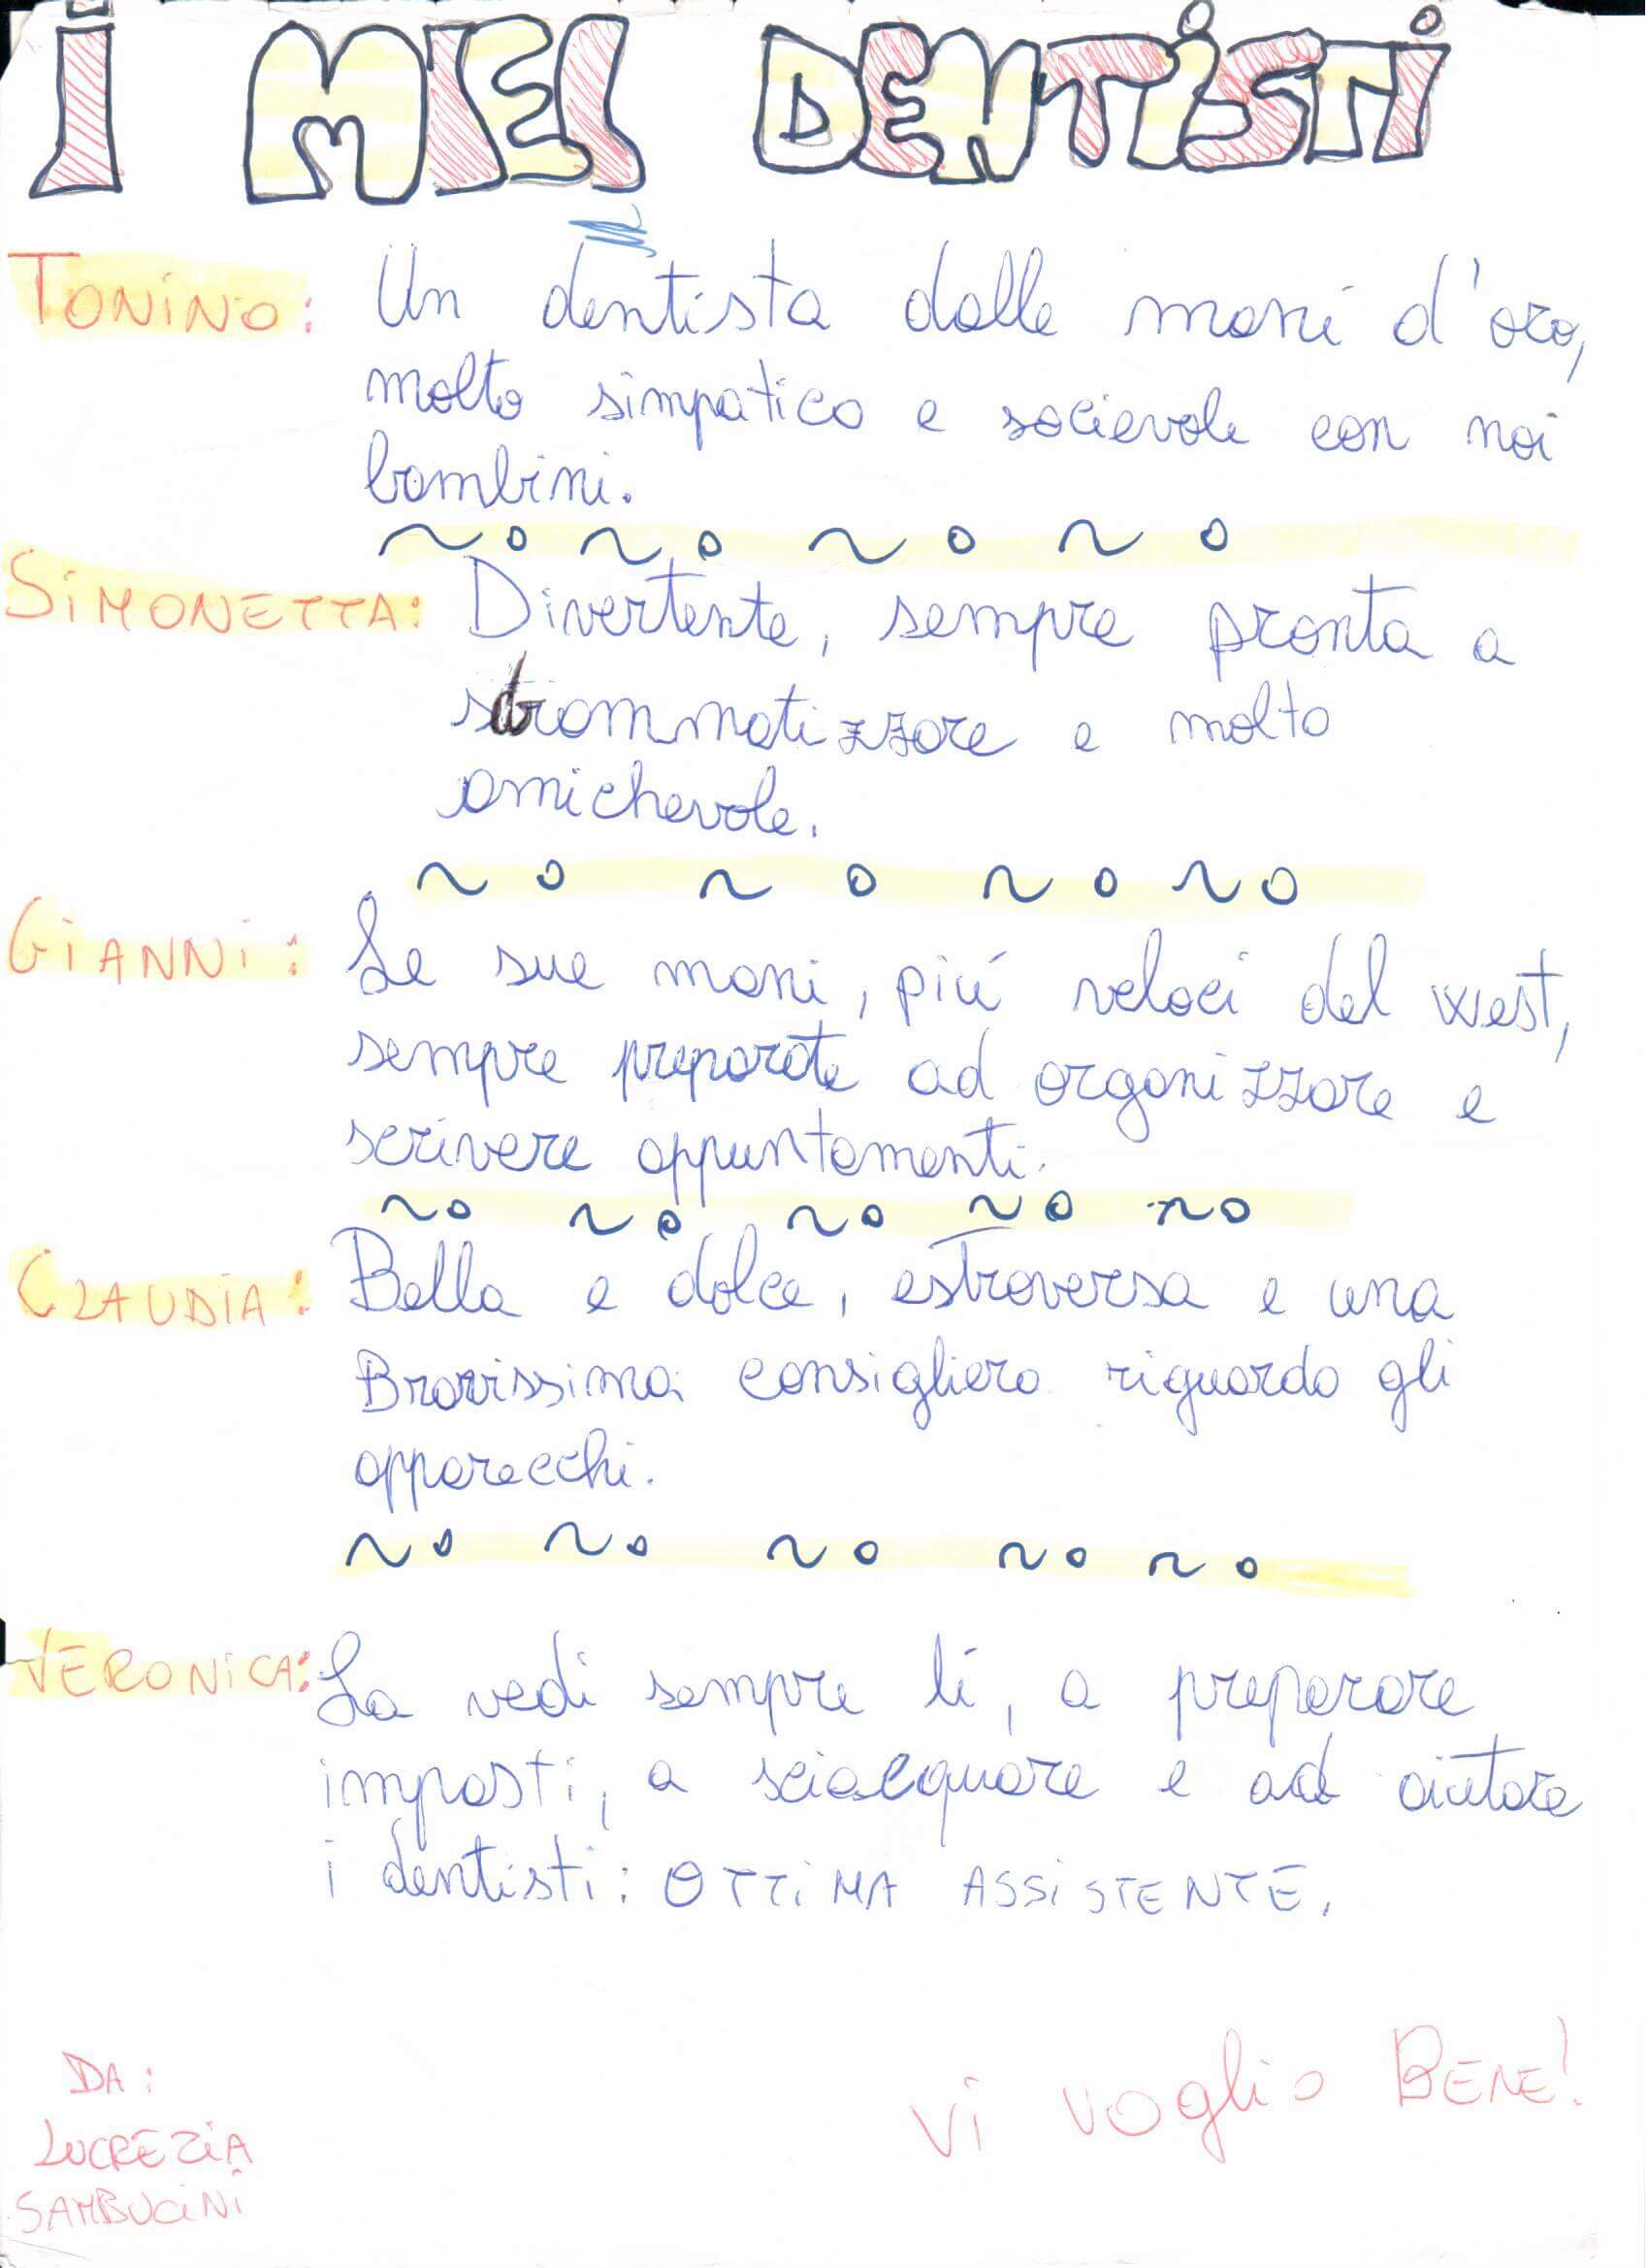 I MIEI DENTISTI
TONINO: Un dentista dalle mani d'oro,
molto simpatico e socievole con noi
bambini.
SIMONETTA: Divertente, sempre pronta a
sdrammatizzare e molto
amichevole.
GIANNI: Le sue mani, piú veloci del west,
sempre preparate ad organizzare e
scrivere appuntamenti.
CLAUDIA: Bella e dolce, estroversa e una
Bravissima consigliera riguardo gli
apparecchi.
VERONICA: La vedi sempre lí, a preparare
impasti, a sciacquare e ad aiutare
i dentisti: OTTIMA ASSISTENTE.
Vi voglio BENE!
DA:
LUCREZIA
SAMBUCINI